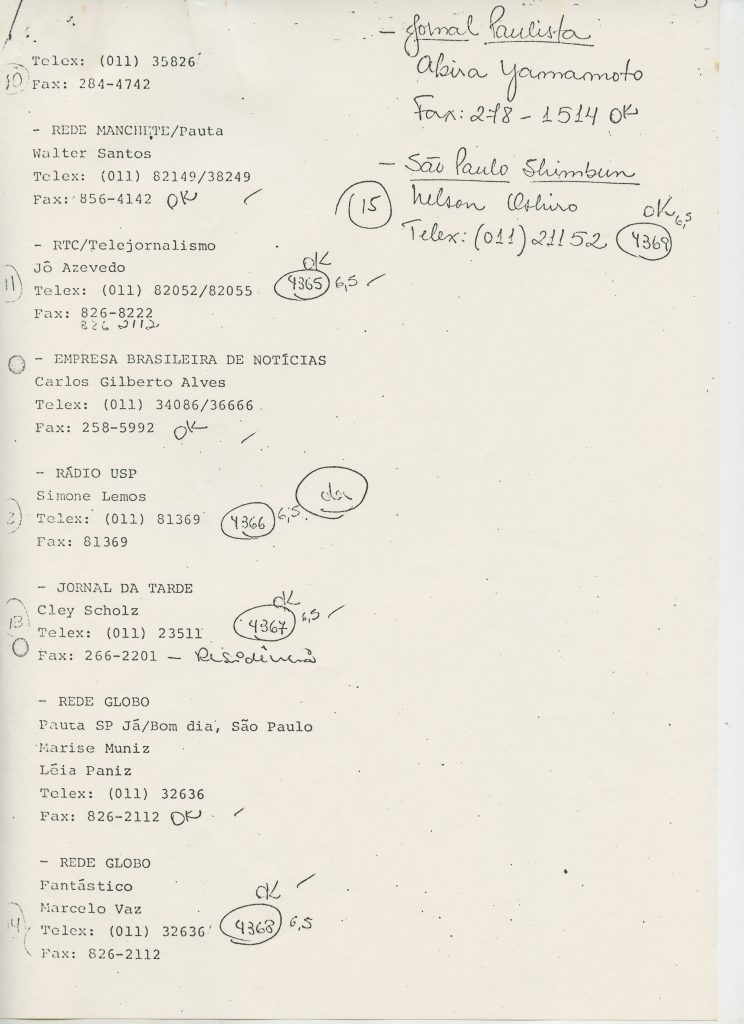 Telex: (011) 35826
10 Fax: 284-4742
- REDE MANCHETE/Pauta
Walter Santos
Telex: (011) 82149/38249
Fax: 856-4142 OK
- RTC/Telejornalismo
Jô Azevedo
OK
11 Telex: (011) 82052/82055 4365 6,5
Fax: 826-8222
826 2112
- EMPRESA BRASILEIRA DE NOTÍCIAS
Carlos Gilberto Alves
Telex: (011) 34086/36666
Fax: 258-5992 OK
- RÁDIO USP
Simone Lemos
Telex: (011) 81369 4366 6,5
Fax: 81369
- JORNAL DA TARDE
Cley Scholz OK
13 Telex: (011) 23511 4367 6,5
Fax: 266-2201 - Residência
- REDE GLOBO
Pauta SP Já/Bom dia, São Paulo
Marise Muniz
Léia Paniz
Telex: (011) 32636
Fax: 826-2112 OK
- REDE GLOBO
Fantástico
Marcelo Vaz OK
14 Telex: (011) 32636 4368 6,5
Fax: 826-2112
- Jornal Paulista
Akira Yamamoto
Fax: 278-1514 OK
- São Paulo Shimbun
15 Nelson Oshiro OK
Telex: (011) 21152 4369 6,5